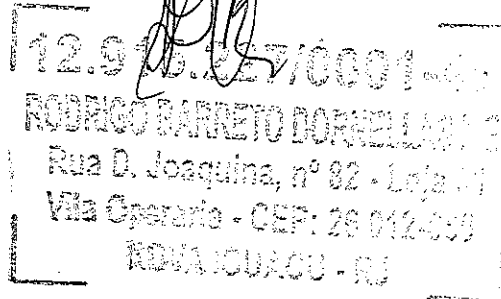 RODRIGO BARRETO DORNELLAS
Rua D. Joaquina, nº 82 - Loja
Vila Operaria - CEP: 26 012-
NOVA IGUAÇU - RJ